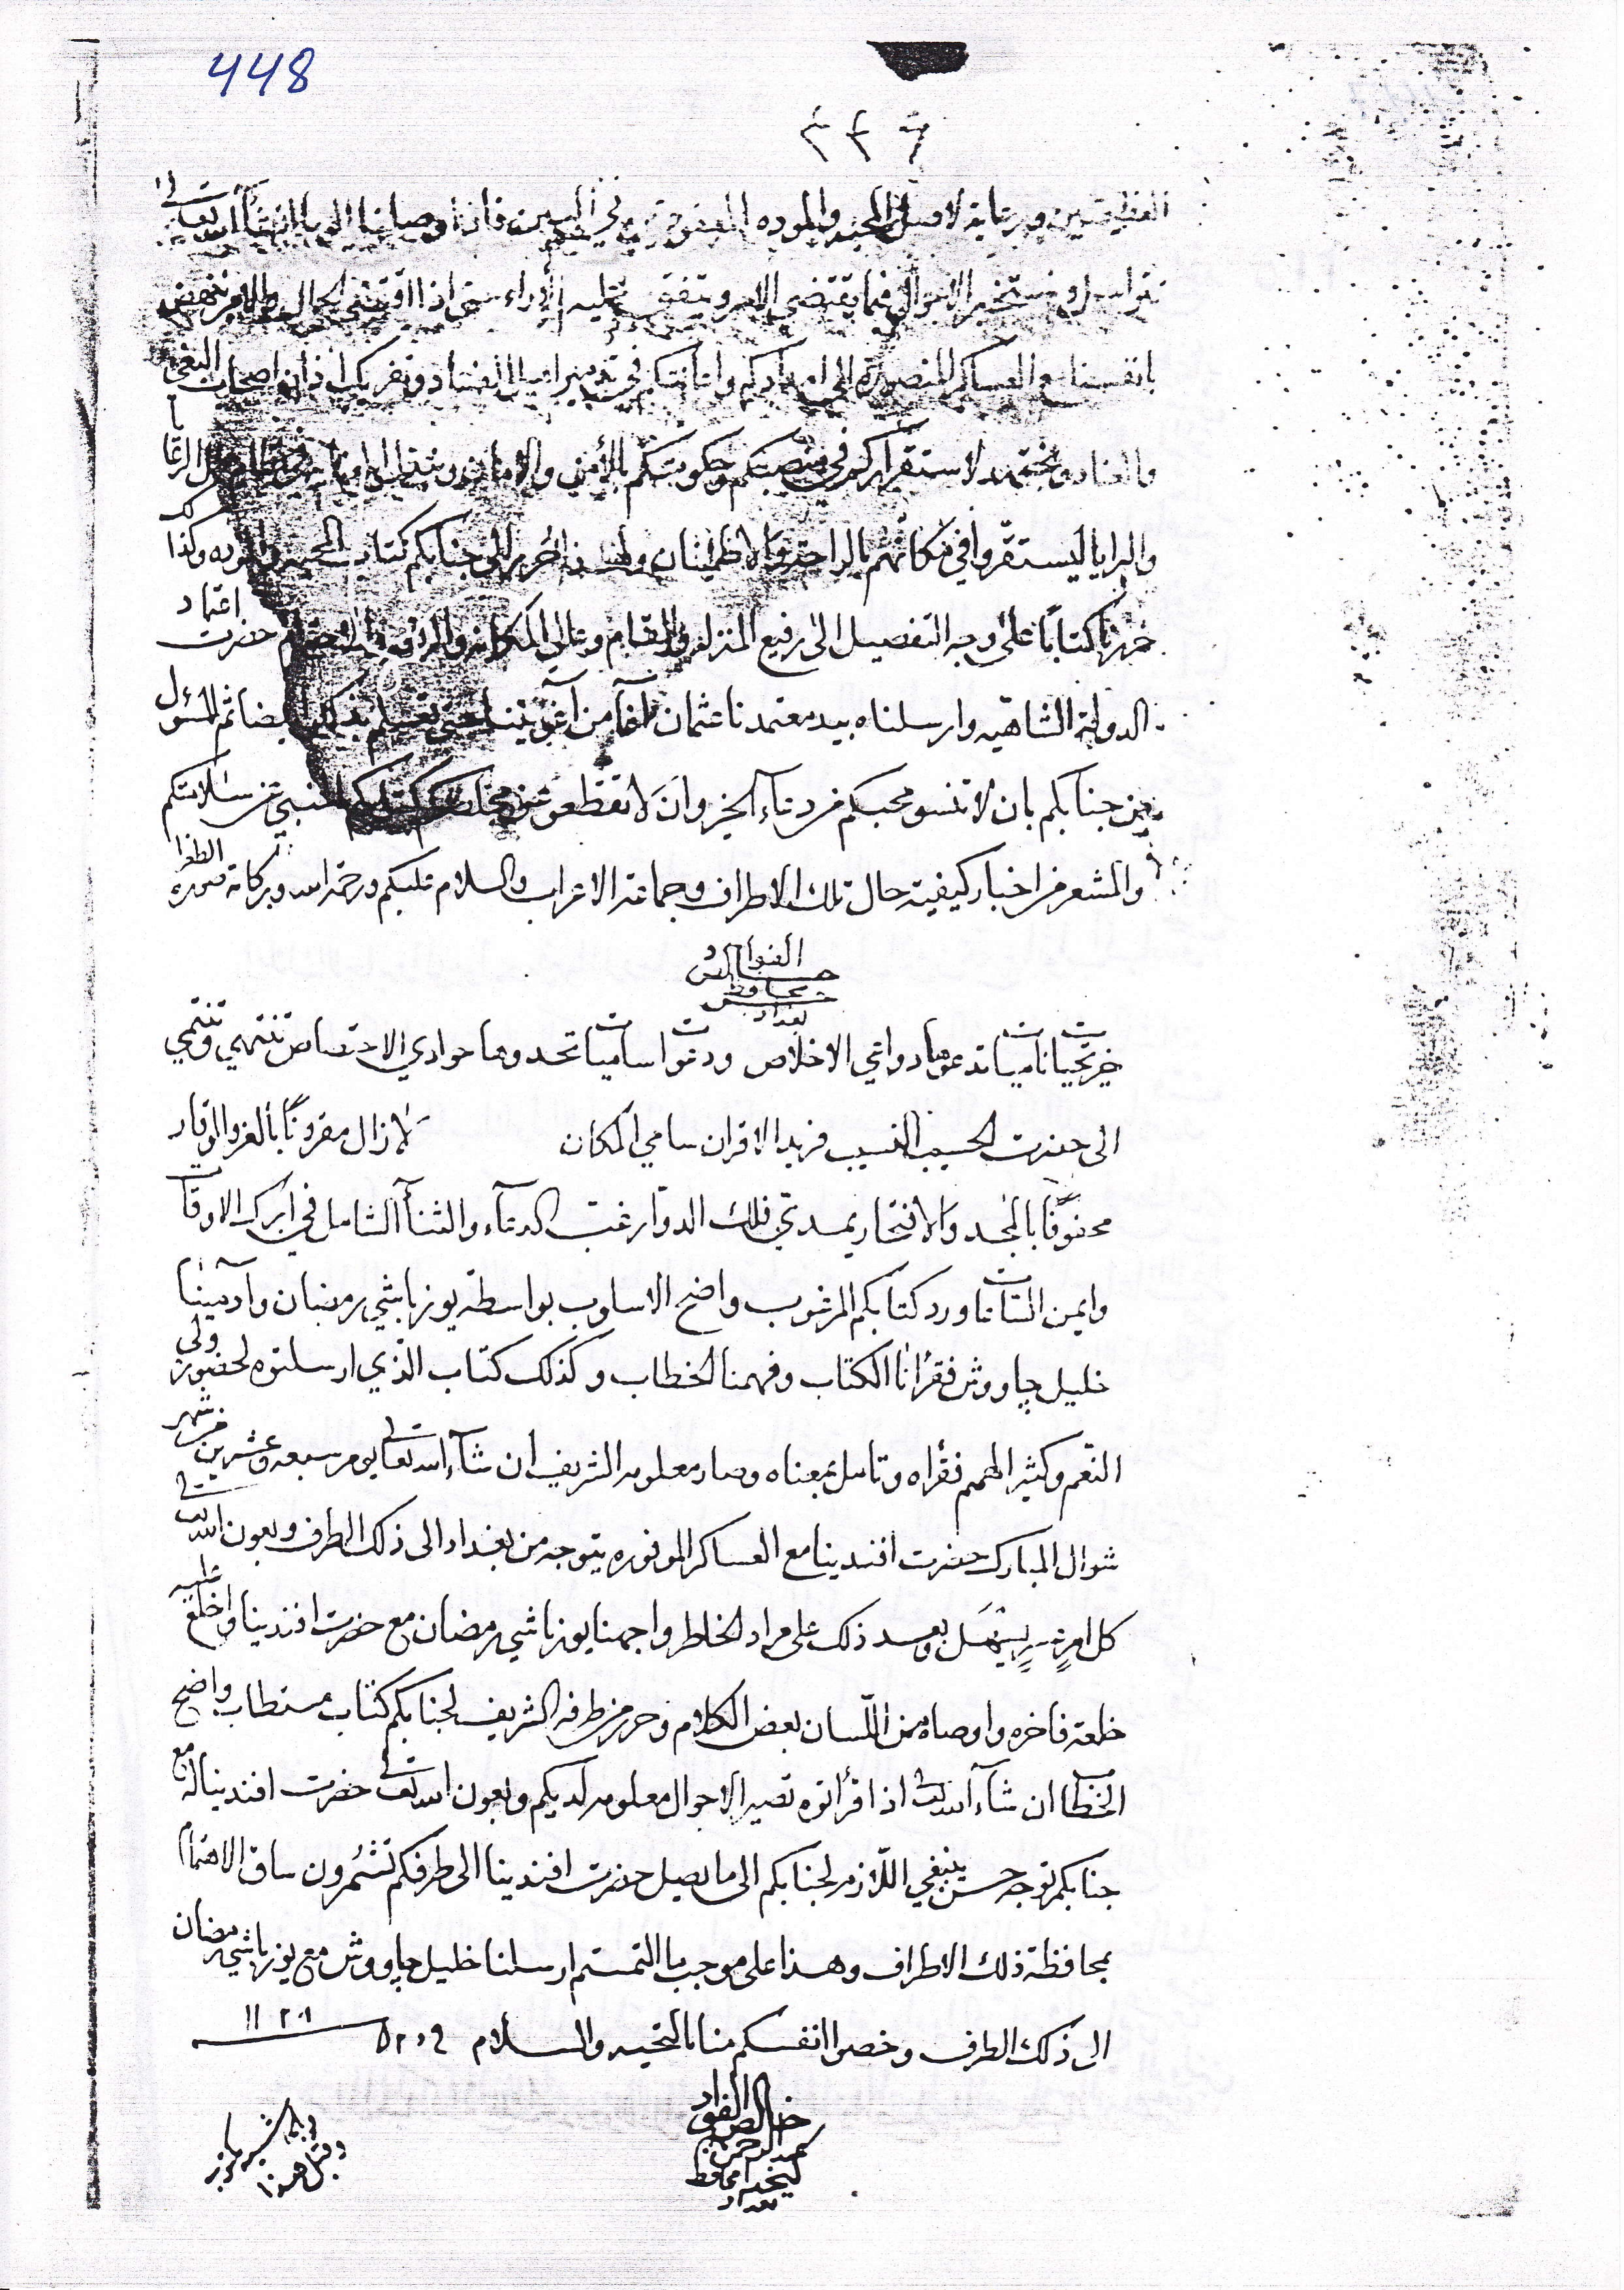 448
٣٤٦
العظيمتين ورعاية لاصل المحبة والموده المعقوده في البين فاذا وصلنا اليها انشأ الله تعالى
نتراسل ونستخبر الاحوال فما يقتضي الامر ويتفق عليه الاراء حتى اذا اقتضى الحال والامر ننهض
بانفسنا مع العساكر المنصوره الى امدادكم واعانتكم في تدمير اهل الفساد وتفريك اذان اصحاب البغي
والعناد ونجتهد لاستقراركم في منصبكم وحكومتكم بالأمن والامان الرعايا
والبرايا ليستقروا في مكانهم بالراحة والاطمئنان ولهذا حرر الى جنابكم كتاب المحبة وكذلك
حررنا كتاباً على وجه التفصيل الى رفيع المنزله والمقام وعالي المكانه حضرت اعتماد
الدولة الشاهيه وارسلناه بيد معتمدنا عثمان آغا من آغويتنا حتى ايضا ثم المسؤل
من جنابكم بان لا تنسو محبكم من دعاء الخير وان لا تقطعو عن كتابكم المنبي عن سلامتكم
والمشعر من اخبار كيفية حال تلك الاطراف وجماعة الاعراب والسلام عليكم ورحمة الله وبركاته صورة الطغرا
الفواد
خالص
محافظ
بغداد
خير تحيات ناميات تدعوها دواعي الاخلاص ودعوات ساميات تحدوها حوادي الاختصاص تنتهي وتنتمي
الى حضرت الحسيب النسيب فريد الاقران سامي المكان لا زال مقرونًا بالعز والوقار
محفوفًا بالمجد والافتخار بمدى فلك الدوار غب الدعاء والثنآ الشامل في ابرك الاوقات
وايمن الساعات ورد كتابكم المرغوب واضح الاسلوب بواسطة يوزباشي رمضان وآدمينا
خليل چاووش فقرأنا الكتاب وفهمنا الخطاب وكذلك كتاب الذي ارسلتوه لحضور ولي
النعم وكثير الهمم فقراه وتامل بمعناه وصار معلومه الشريف ان شاء الله تعالى يوم سبعه وعشرين من شهر
شوال المبارك حضرت افندينا مع العساكر الموفوره يتوجه من بغداد الى ذلك الطرف وبعون الله تعالى
كل امر يسهل وبعد ذلك على مراد الخاطر واجهنا يوزباشي رمضان مع حضرت افندينا واخلع عليه
خلعة فاخره واوصاه من اللّسان بعض الكلام وحرر من طرفه الشريف لجنابكم كتاب مستطاب واضح
الخطاب ان شاء الله تعالى اذا قرأتوه تصير الاحوال معلومه لديكم وبعون الله تعالى حضرت افندينا له مع
جنابكم توجه حسن ينبغي اللّازم لجنابكم الى ما يصل حضرت افندينا الى طرفكم تشمرون ساق الاهتمام
بمحافظة ذلك الاطراف وهذا على موجب ما التمستم ارسلنا خليل چاووش مع يوزباشي رمضان
الى ذلك الطرف وخصوا انفسكم منا بالتحيه والسلام
خالص الفواد
عبد الرحمن
كتخدا محافظ
بغداد